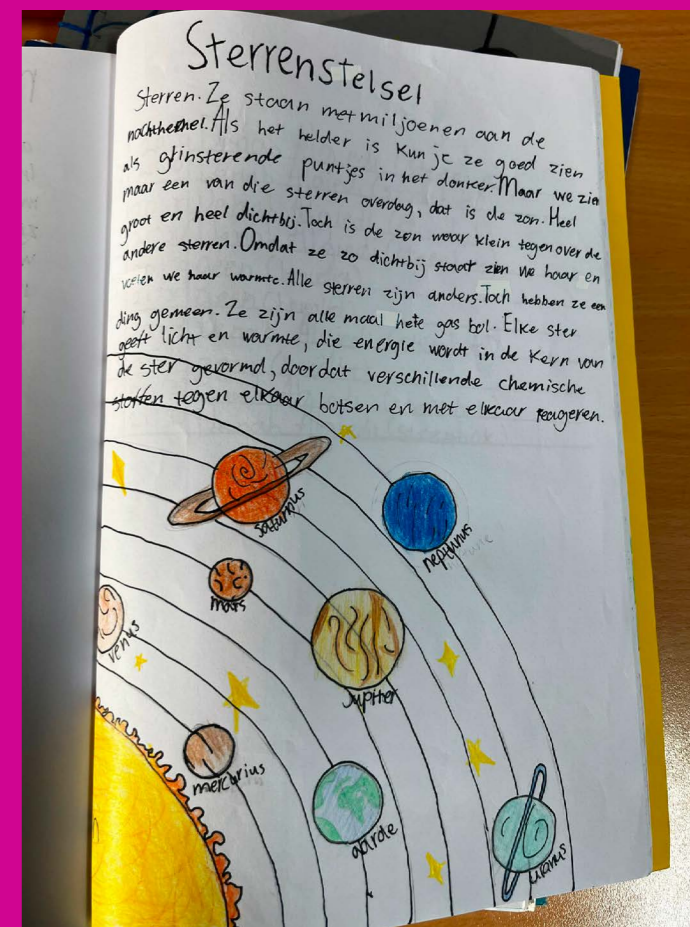 Sterrenstelsel
Sterren. Ze staan met miljoenen aan de
nachthemel. Als het helder is kun je ze goed zien
als glinsterende puntjes in het donker. Maar we zien
maar een van die sterren overdag, dat is de zon. Heel
groot en heel dichtbij. Toch is de zon maar klein tegenover de
andere sterren. Omdat ze zo dichtbij staat zien we haar en
voelen we haar warmte. Alle sterren zijn anders. Toch hebben ze een
ding gemeen. Ze zijn alle maal hete gas bol. Elke ster
geeft licht en warmte, die energie wordt in de kern van
de ster gevormd, doordat verschillende chemische
stoffen tegen elkaar botsen en met elkaar reageren.
saturnus
neptunus
mars
venus
Jupiter
mercurius
aarde
uranus